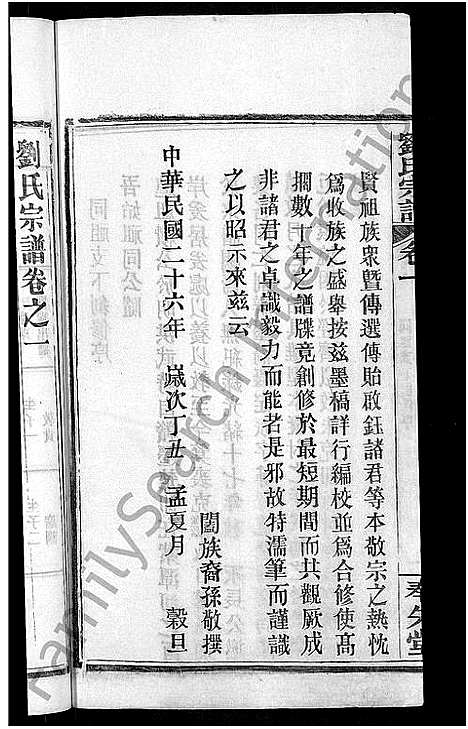 劉氏宗譜 卷一
賢祖族衆暨傳選傳貽啟鈺諸君等本敬宗之熱忱
爲收族之盛舉按兹墨稿詳行編校並爲合修使高
擱數十年之譜牒竟創修於最短期間而共觀厥成
非諸君之卓識毅力而能者是邪故特濡筆而謹識
之以昭示來兹云
闔族裔孫敬撰
中華民國二十六年 歲次丁丑 孟夏月 穀旦
劉氏宗譜卷之一
FamilySearch International